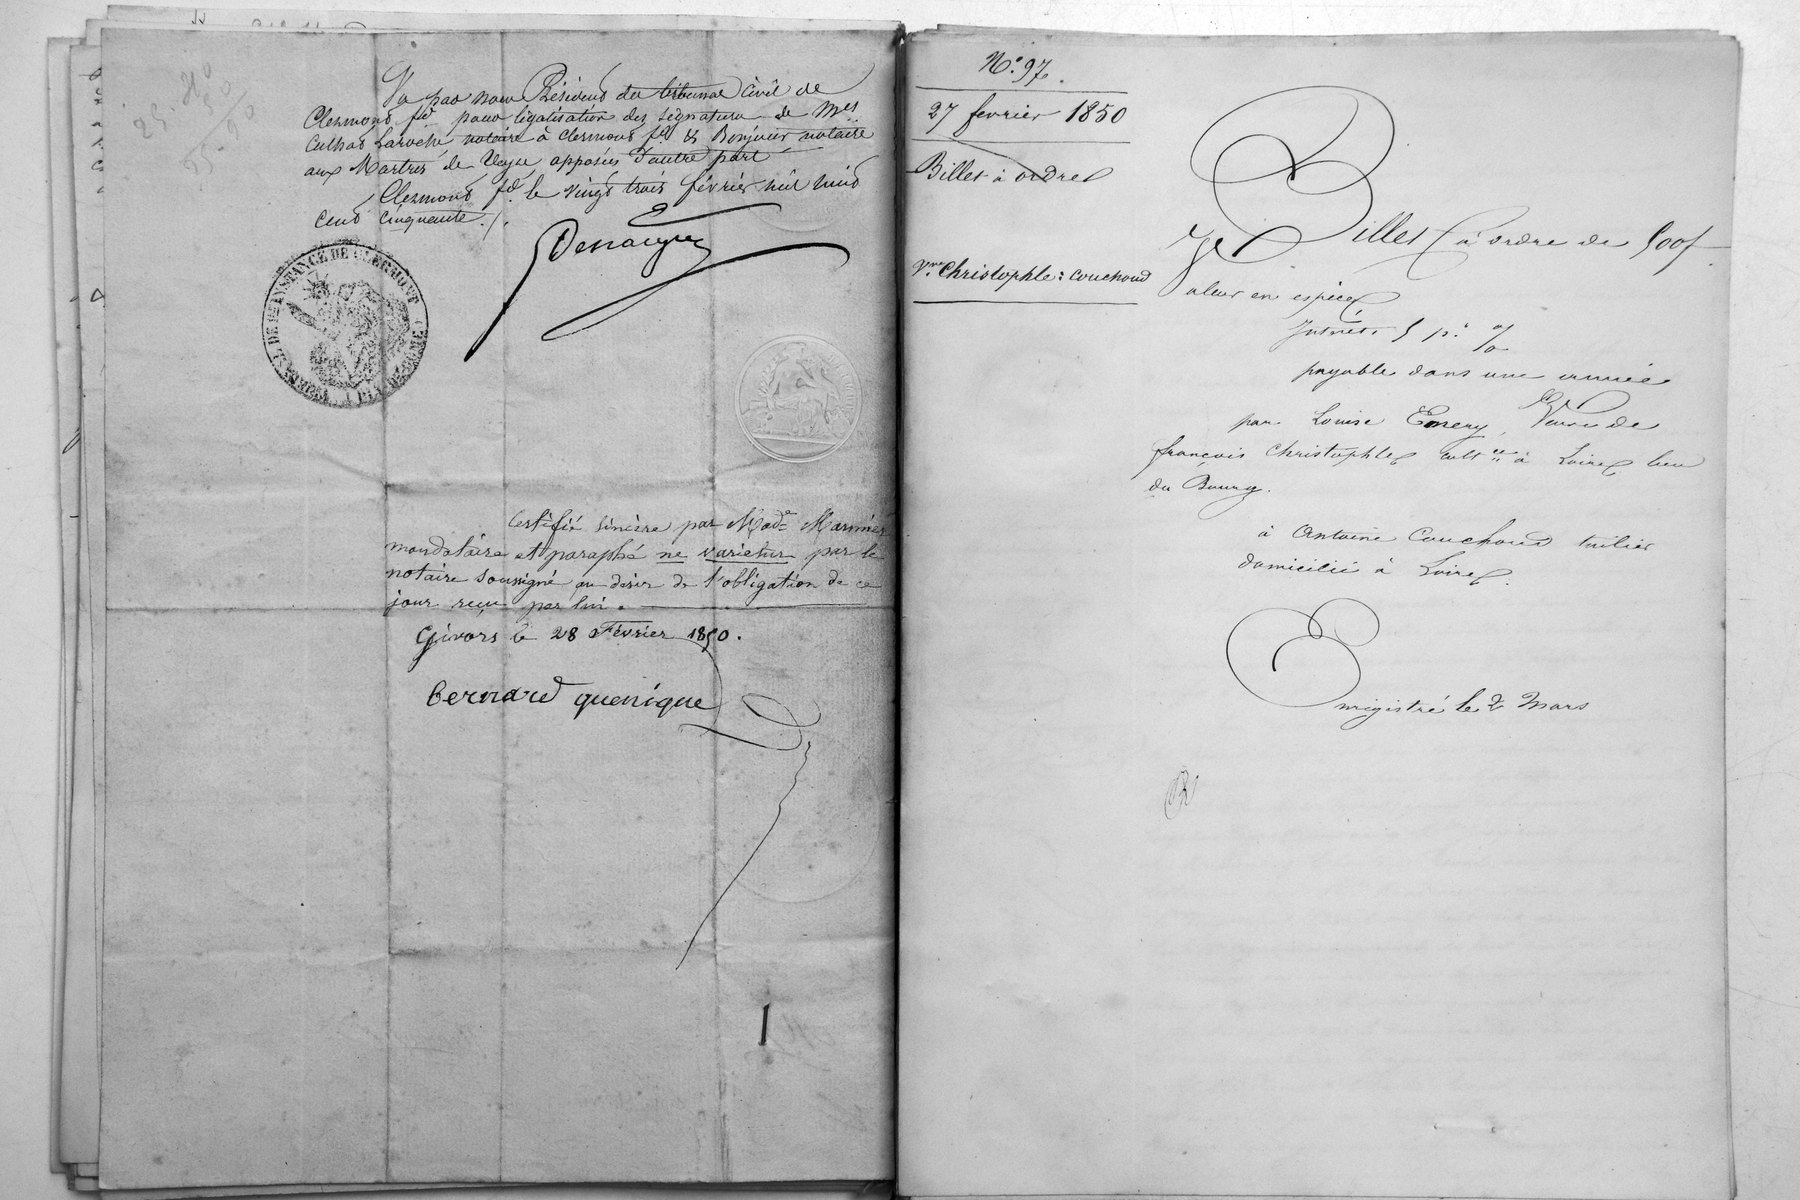 Vu par nous Président du tribunal civil de
Clermont fd pour légalisation des signatures de Mes
Culhat Laroche notaire à Clermont fd & Bonjour notaire
aux Martres de Veyre apposées d'autre part
Clermont fd le vingt trois février mil huit
cent cinquante ./.
TRIBUNAL DE 1ère INSTANCE DE CLERMONT
PUY DE DOME
Certifié sincère par Made Marmier
mandataire et paraphé ne varietur par le
notaire soussigné au désir de l'obligation de ce
jour reçu par lui.
Givors le 28 Février 1850.
Bernard quenique
No. 97.
27 fevrier 1850
Billet à ordre
Vve. Christophle : Couchoud
Billet à ordre de 500f
Valeur en espèces
Intérêts 5 pr %
payable dans une année
par Louise Emery, Veuve de
françois Christophle cultce à Loire lieu
du Bourg.
à Antoine Couchoud tuilier
domicilié à Loire.
Enregistré le 2 Mars